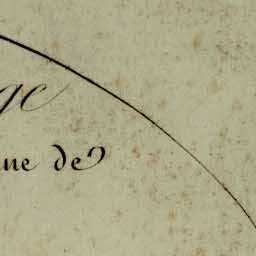 ge
ne de